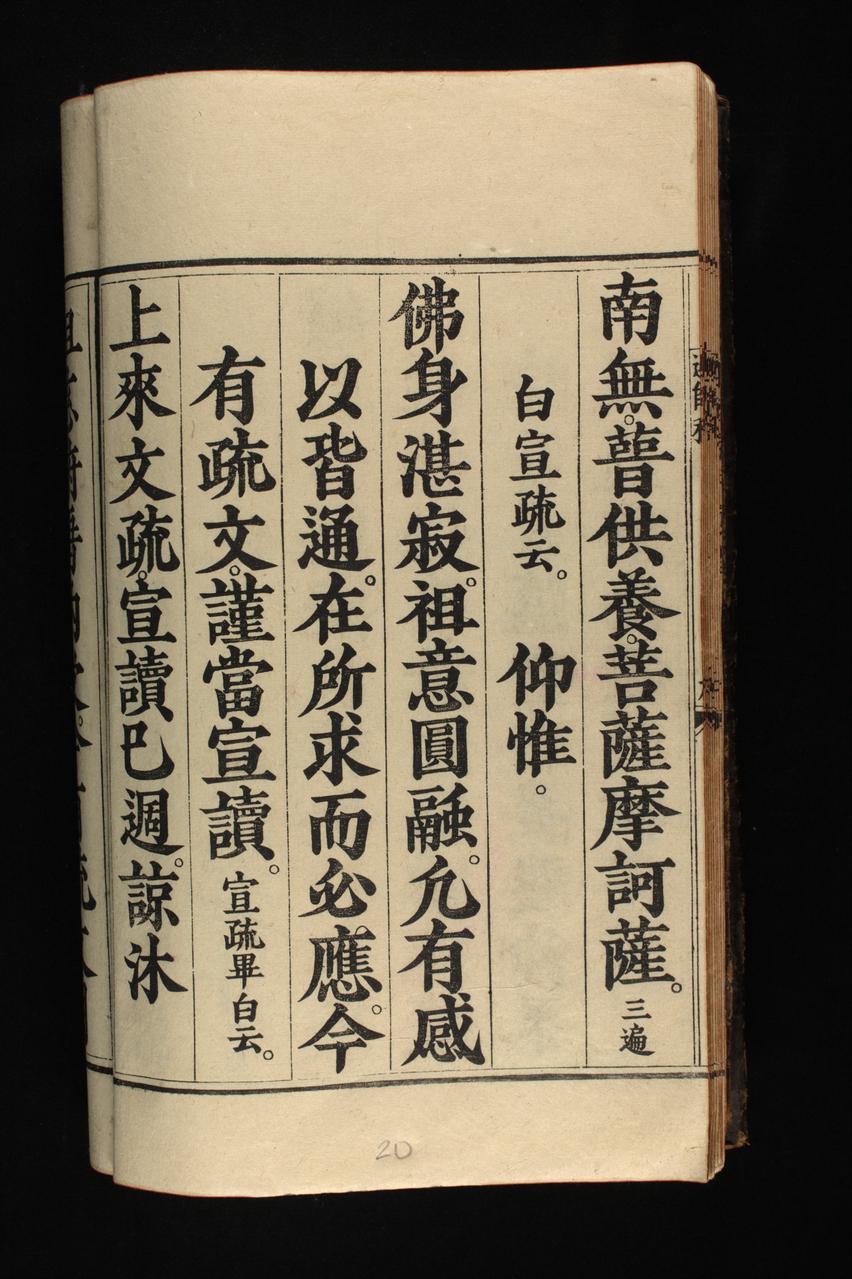 南無。普供養。菩薩摩訶薩。三遍
白宣疏云。仰惟。
佛身湛寂。祖意圓融。允有感
以皆通。在所求而必應。今
有疏文。謹當宣讀。宣疏畢白云。
上來文疏。宣讀已週。諒沐
20